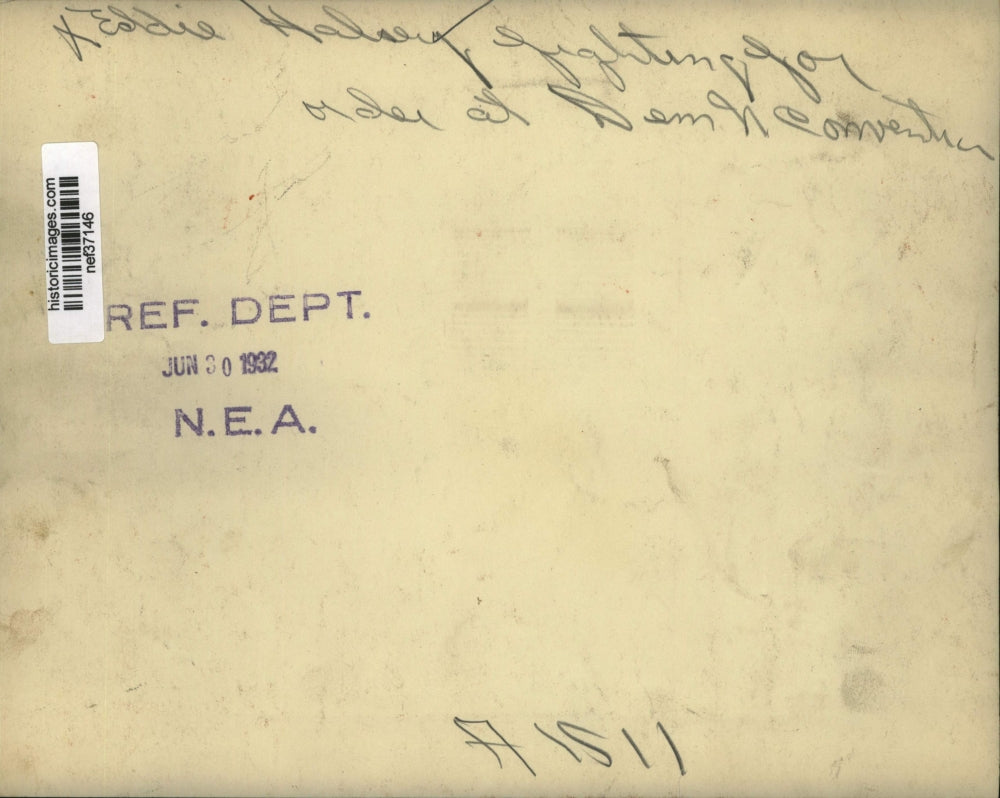 Eddie Halsey fighting for
order at Dem N Convention
historicimages.com
nef37146
REF. DEPT.
JUN 30 1932
N.E.A.
A 1511